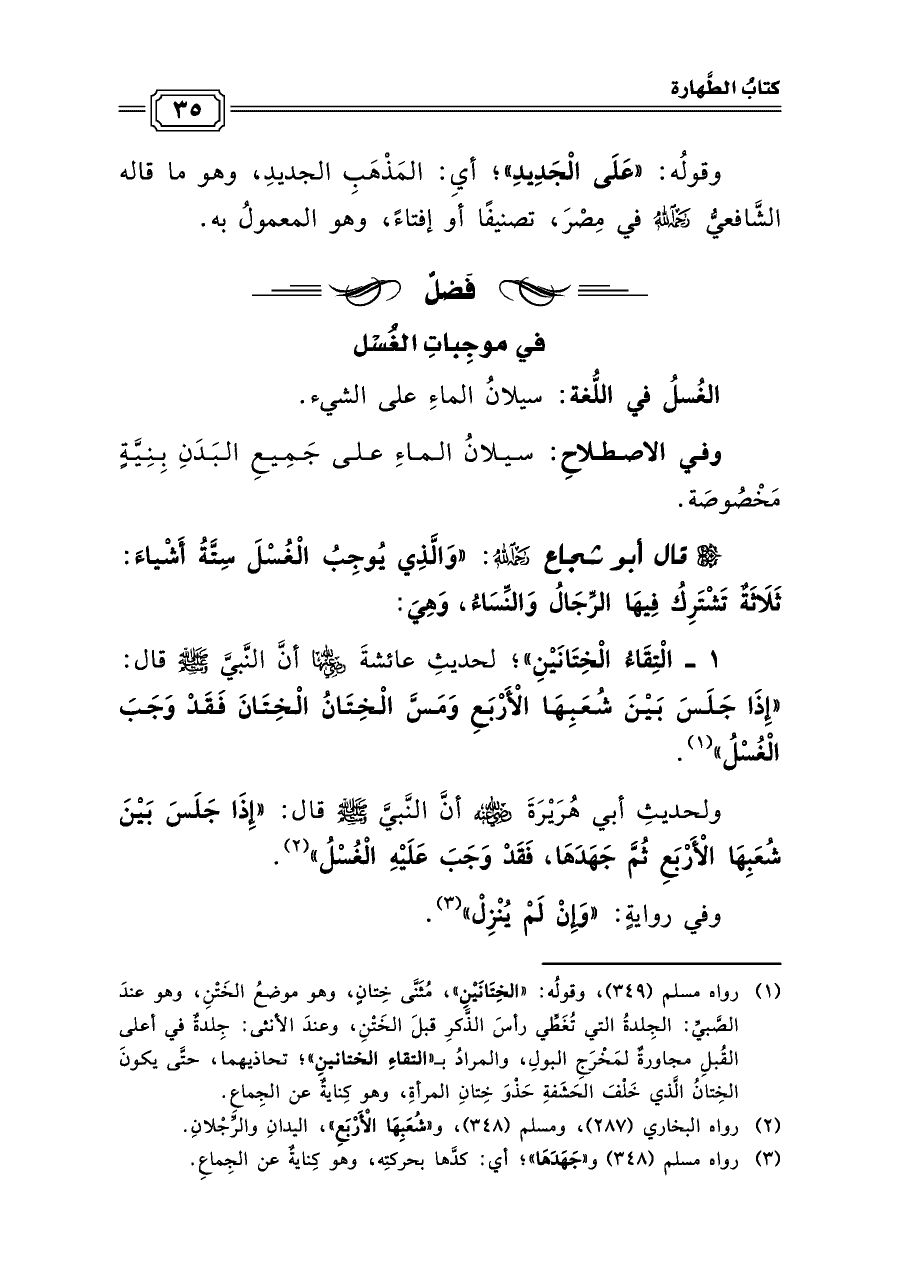 كتابُ الطَّهارة
٣٥
وقولُه: «عَلَى الْجَدِيدِ»؛ أيِ: المَذْهَبِ الجديدِ، وهو ما قاله
الشَّافعيُّ رحمه الله في مِصْرَ، تصنيفًا أو إفتاءً، وهو المعمولُ به.
فَصْلٌ
في موجِباتِ الغُسْل
الغُسلُ في اللُّغة: سيلانُ الماءِ على الشيء.
وفي الاصطلاحِ: سيلانُ الماءِ على جَمِيعِ البَدَنِ بِنِيَّةٍ
مَخْصُوصَة.
قال أبو شجاع رحمه الله: «وَالَّذِي يُوجِبُ الْغُسْلَ سِتَّةُ أَشْياءَ:
ثَلَاثَةٌ تَشْتَرِكُ فِيهَا الرِّجَالُ وَالنِّسَاءُ، وَهِيَ:
١ ـ الْتِقَاءُ الْخِتَانَيْنِ»؛ لحديثِ عائشةَ رضي الله عنها أنَّ النَّبيَّ ﷺ قال:
«إِذَا جَلَسَ بَيْنَ شُعَبِهَا الْأَرْبَعِ وَمَسَّ الْخِتَانُ الْخِتَانَ فَقَدْ وَجَبَ
الْغُسْلُ»(١).
ولحديثِ أبي هُرَيْرَةَ رضي الله عنه أنَّ النَّبيَّ ﷺ قال: «إِذَا جَلَسَ بَيْنَ
شُعَبِهَا الْأَرْبَعِ ثُمَّ جَهَدَهَا، فَقَدْ وَجَبَ عَلَيْهِ الْغُسْلُ»(٢).
وفي روايةٍ: «وَإِنْ لَمْ يُنْزِلْ»(٣).
(١) رواه مسلم (٣٤٩)، وقولُه: «الخِتَانَيْنِ»، مُثَنَّى خِتانٍ، وهو موضعُ الخَتْنِ، وهو عندَ
الصَّبيِّ: الجِلدةُ التي تُغَطِّي رأسَ الذَّكرِ قبلَ الخَتْنِ، وعندَ الأنثى: جِلدةٌ في أعلى
القُبلِ مجاورةٌ لمَخْرَجِ البولِ، والمرادُ بـ«التقاءِ الختانينِ»؛ تحاذيهما، حتَّى يكونَ
الخِتانُ الَّذي خَلْفَ الحَشَفةِ حَذْوَ خِتانِ المرأةِ، وهو كِنايةٌ عن الجِماعِ.
(٢) رواه البخاري (٢٨٧)، ومسلم (٣٤٨)، و«شُعَبِهَا الْأَرْبَعِ»، اليدانِ والرِّجْلانِ.
(٣) رواه مسلم (٣٤٨) و«جَهَدَهَا»؛ أي: كدَّها بحركتِه، وهو كِنايةٌ عن الجِماعِ.